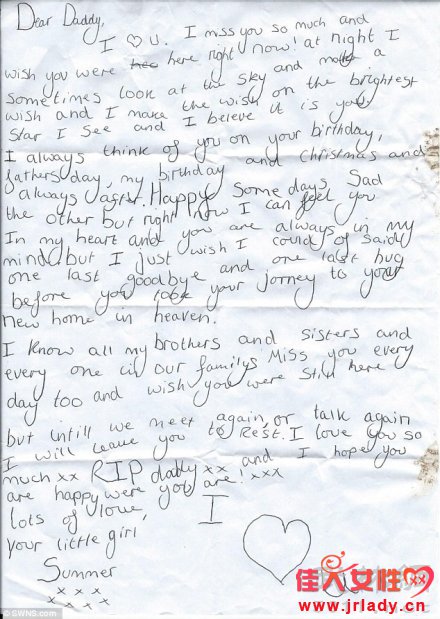 Dear Daddy,
I ♡ U. I miss you so much and
wish you were here right now! at night I
sometimes look at the sky and make a
wish and I make the wish on the brightest
star I see and I beleve it is you
I always think of you on your birthday,
fathers day, my birthday and christmas and
always after. Happy some days Sad
the other but right now I can feel you
In my heart and you are always in my
mind but I just wish I could of said
one last goodbye and one last hug
before you took your jorney to your
new home in heaven.
I know all my brothers and sisters and
every one in our familys Miss you every
day too and wish you were still here
but intill we meet again, or talk again
I will leave you to Rest. I love you so
much xx RIP daddy xx and I hope you
are happy were you are! xxx
lots of love,
your little girl
Summer
x x x
x x x x
I ♡ U
© SWNS.com
佳人女性
www.jrlady.cn